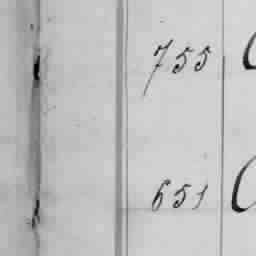 755
651